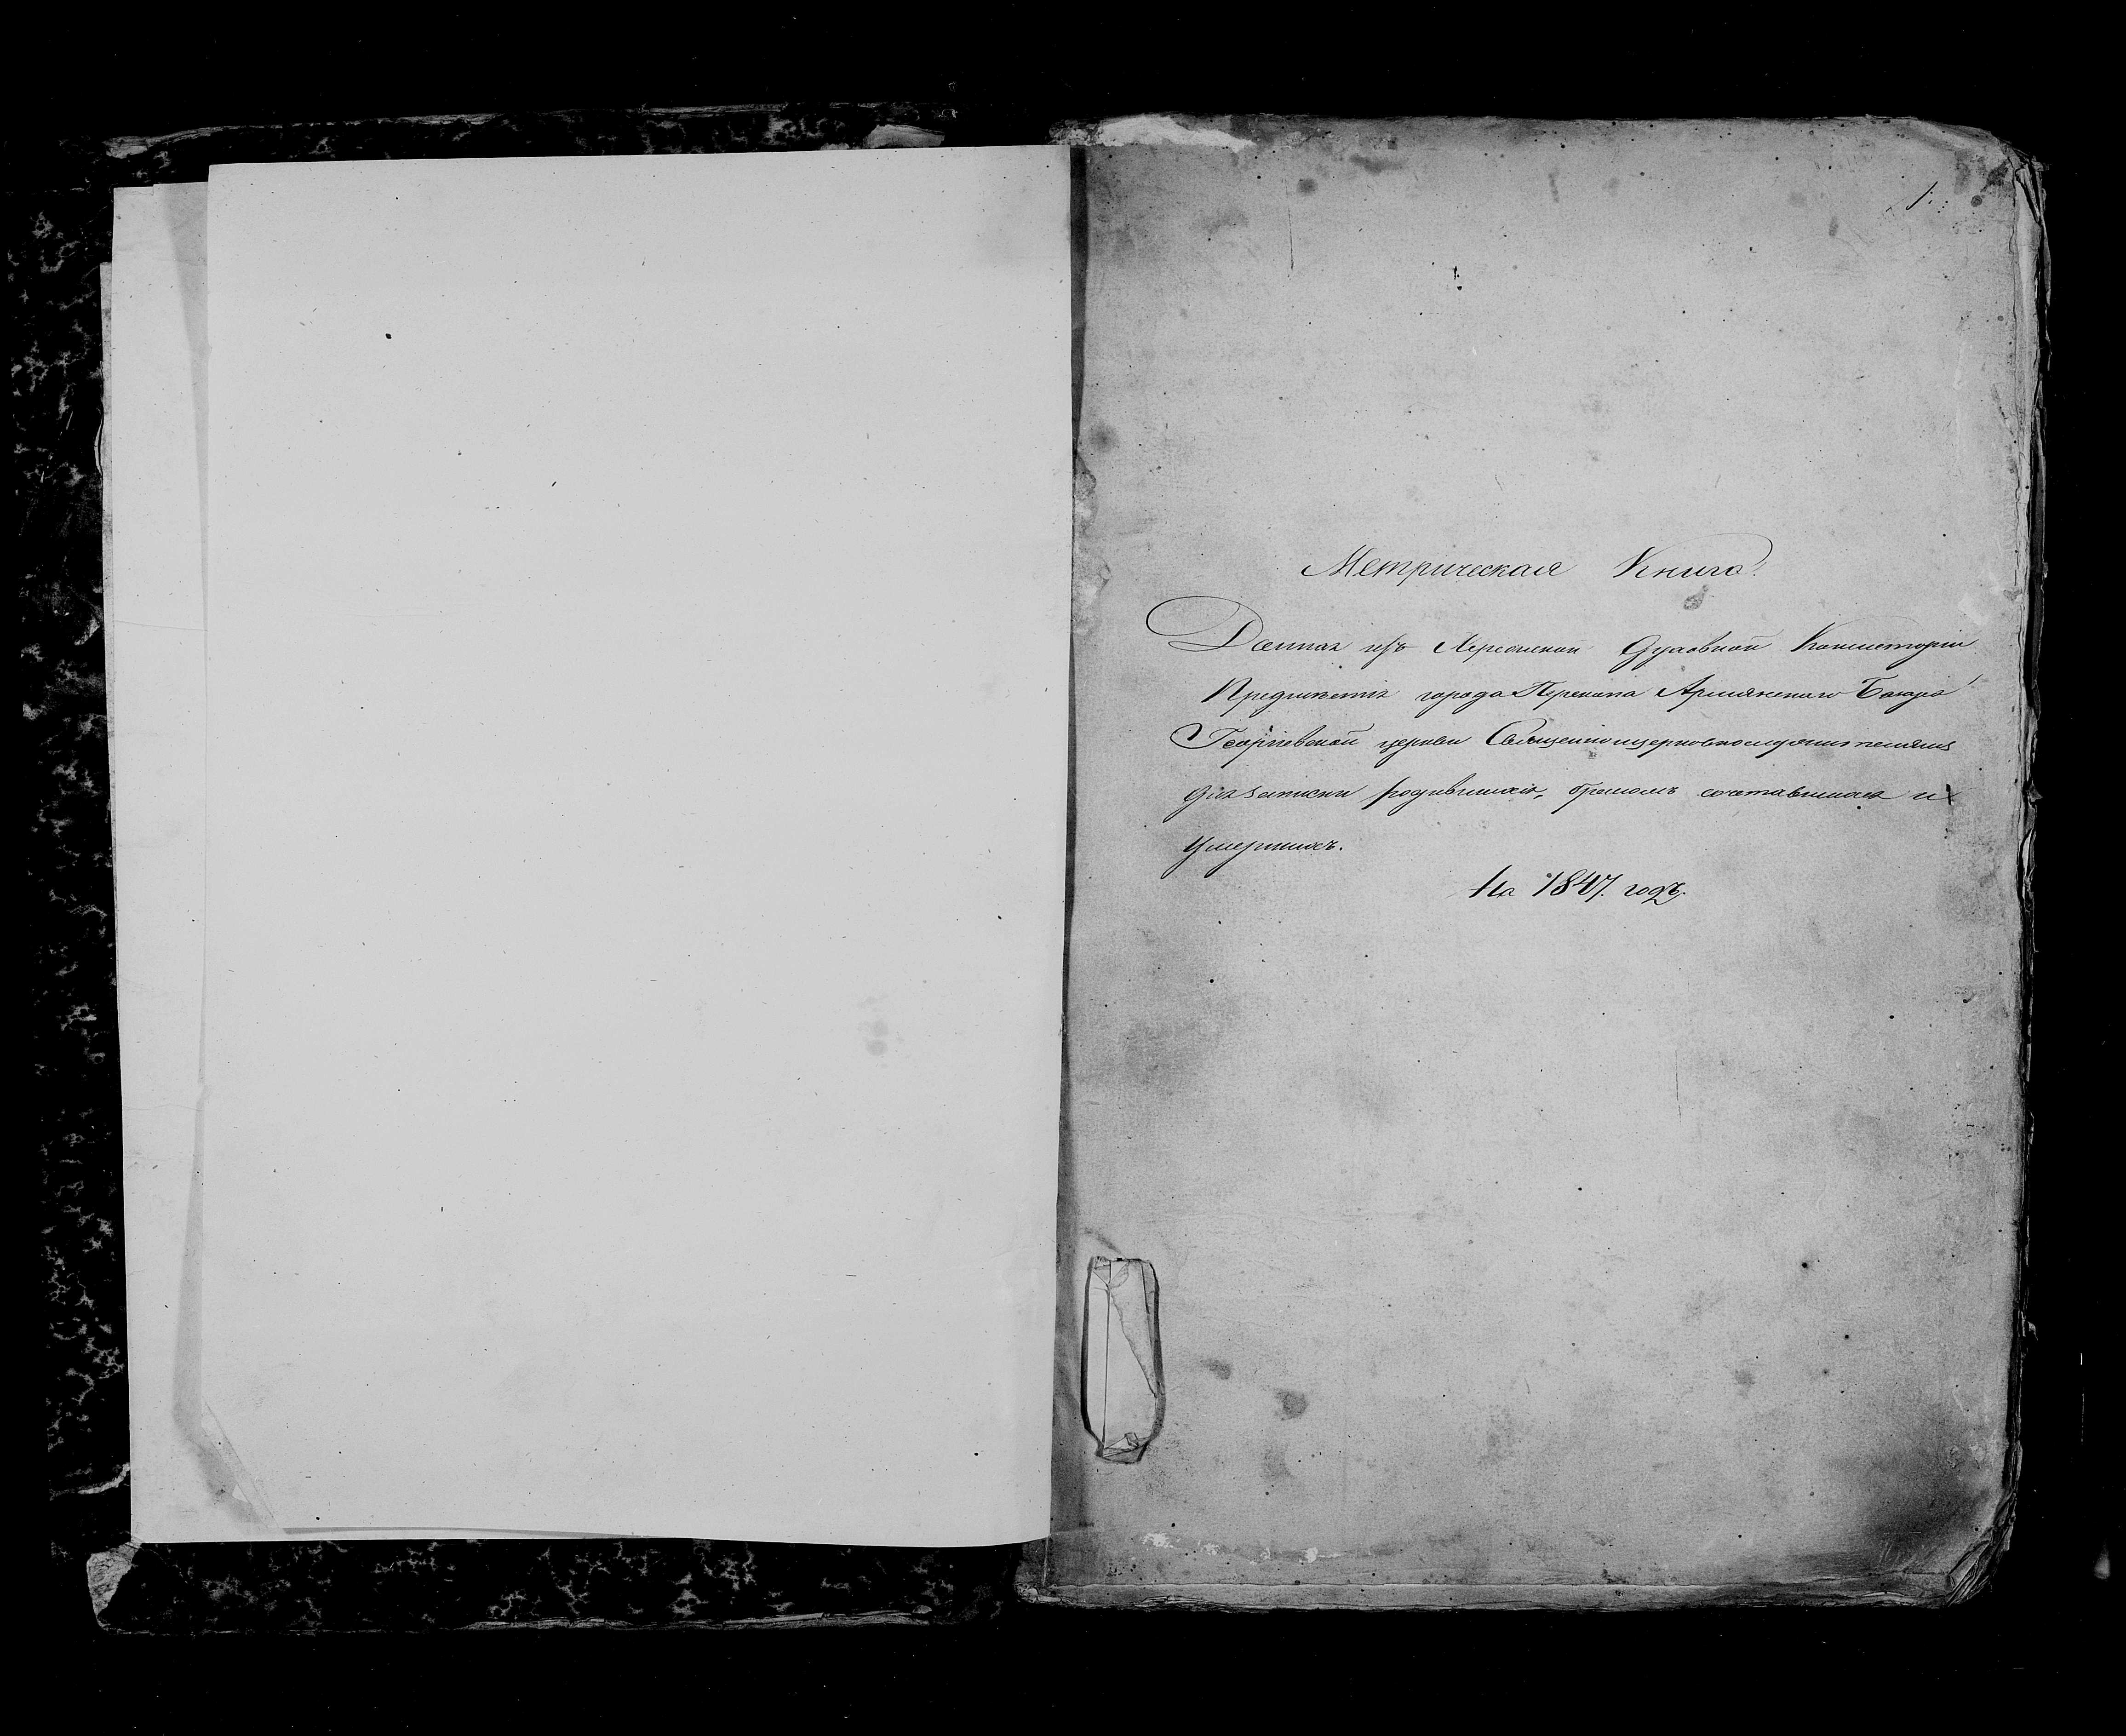 1.
Метрическая Книга.
Данная изъ Херсонской Духовной Консисторіи
Предмѣстія города Перекопа Армянскаго Базара
Георгіевской церкви Священноцерковнослужителямъ
для записки родившихся, бракомъ сочетавшихся и
умершихъ.
На 1847. годъ.